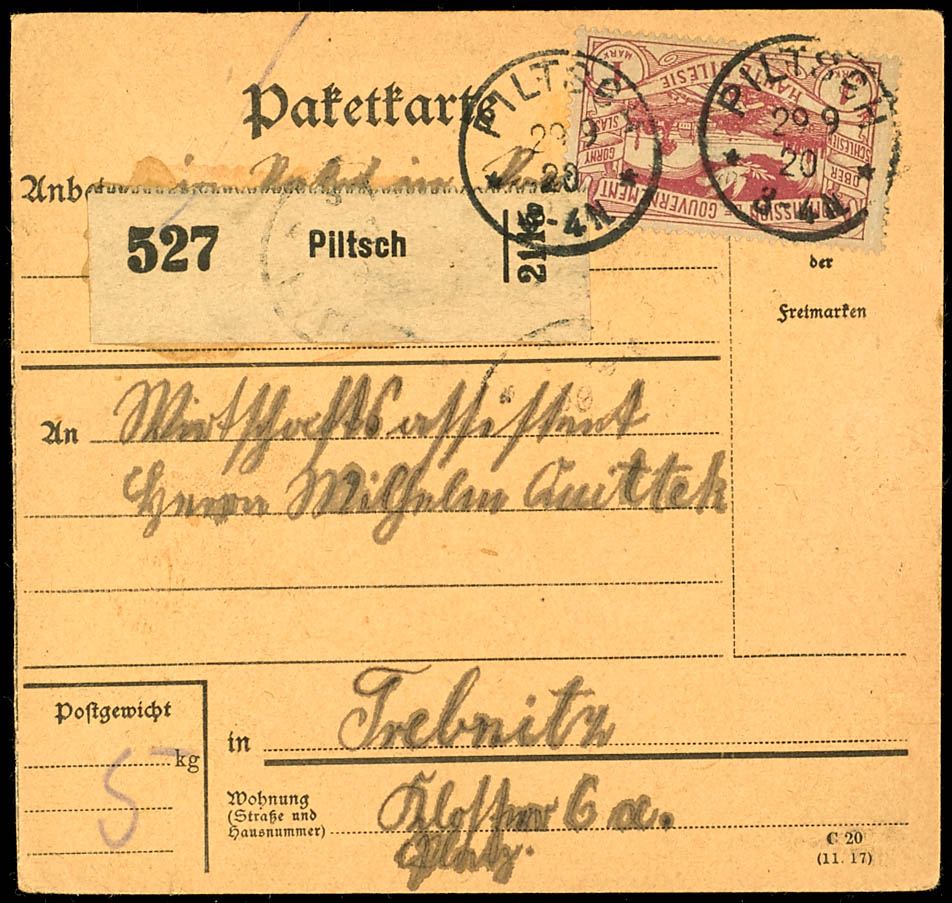 Paketkarte
PILTSCH
29 9
20
3-4N
PILTSCH
29 9
20
3-4N
1 MARK
HAUTE SILESIE
COMMISSION DE GOUVERNEMENT
GORNY SLASK
OBER SCHLESIEN
527 Piltsch
der
Freimarken
An Wirtschaftsassistent
Herrn Wilhelm Quittek
Postgewicht
5 kg
in Trebnitz
Wohnung
(Straße und
Hausnummer)
Kloster 6 a.
Platz.
C 20
(11. 17)